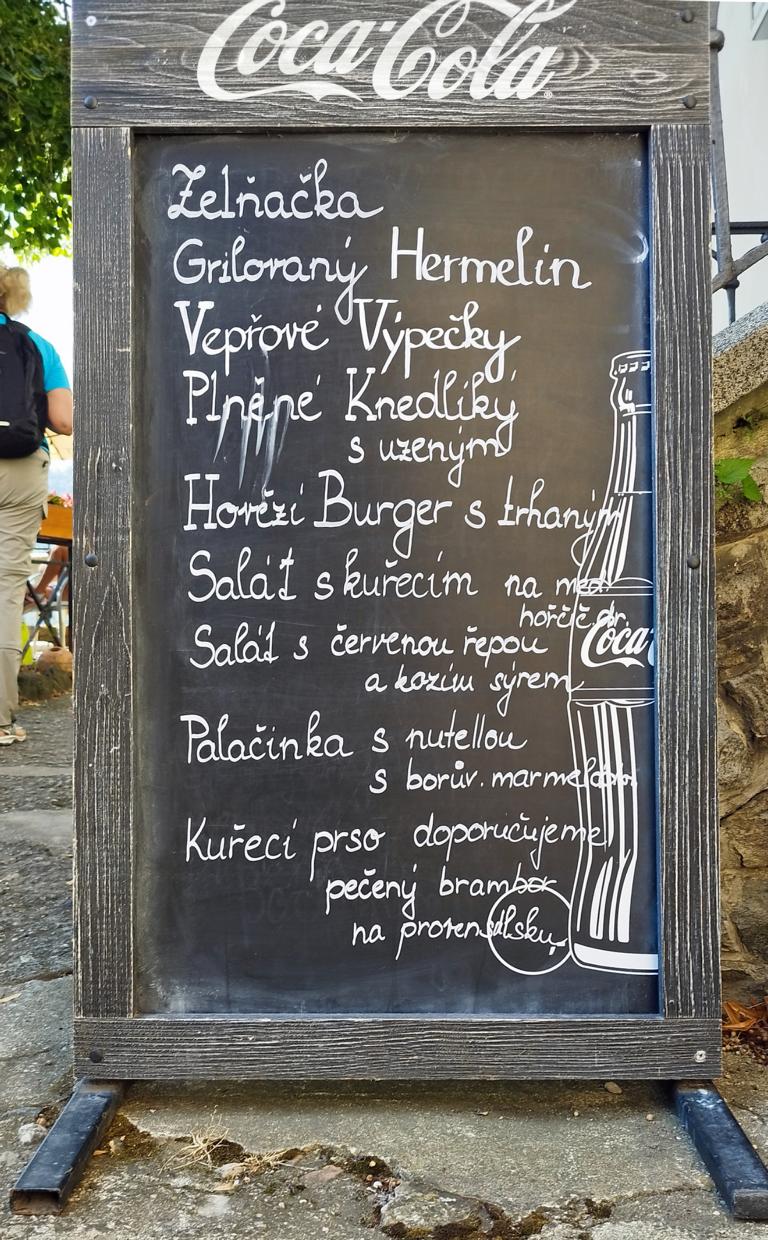 Coca-Cola
Zelňačka
Grilovaný Hermelín
Vepřové Výpečky
Plněné Knedlíky
s uzeným
Hovězí Burger s trhaným
Salát s kuřecím na med.
hořčič.dr.
Salát s červenou řepou
a kozím sýrem
Palačinka s nutellou
s borův. marmeládou
Kuřecí prso doporučujeme
pečený brambor
na provensálsku
Coca-